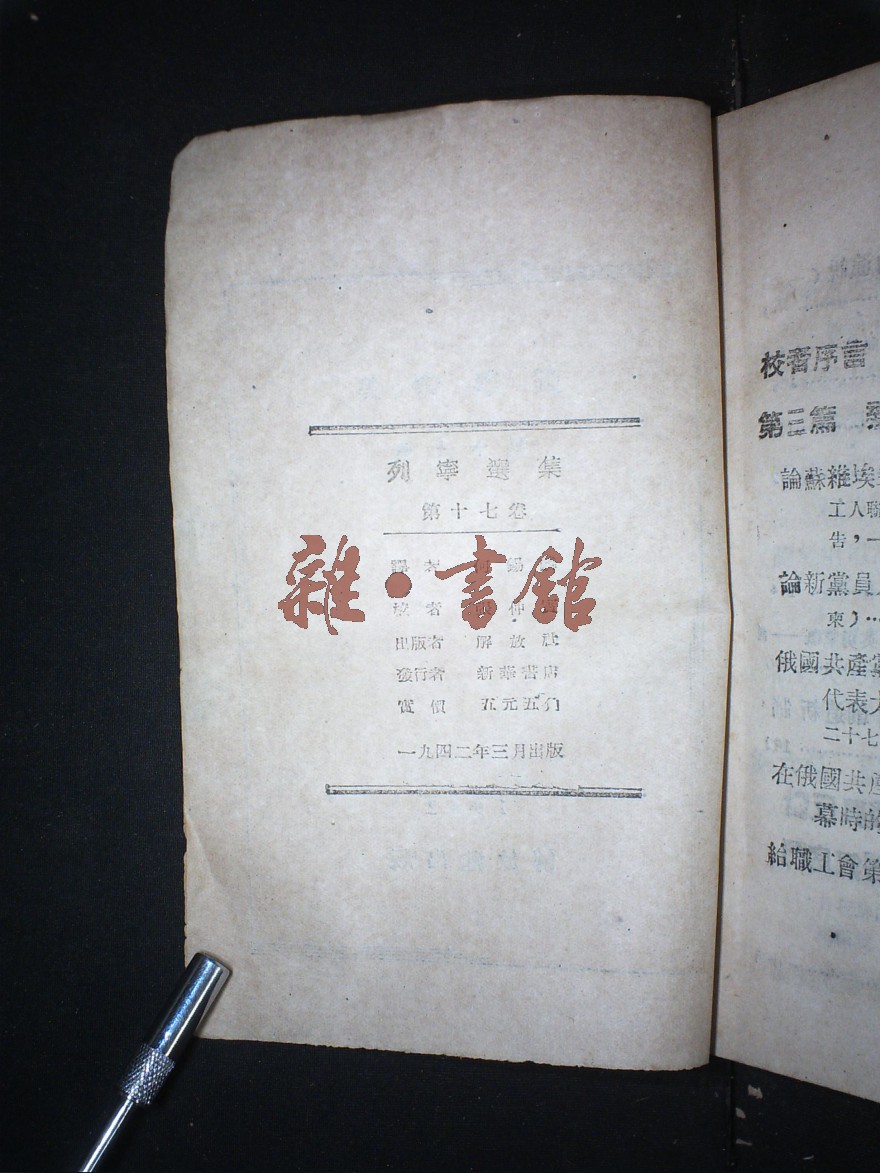 列寧選集
第十七卷
雜·書館
校者
出版者 解放社
發行者 新華書店
實價 五元五角
一九四二年三月出版
校者序言
第三篇
論蘇維埃
工人聯
告，一
論新黨員
東）…
俄國共產黨
代表大
二十七
在俄國共產
幕時的
給職工會第